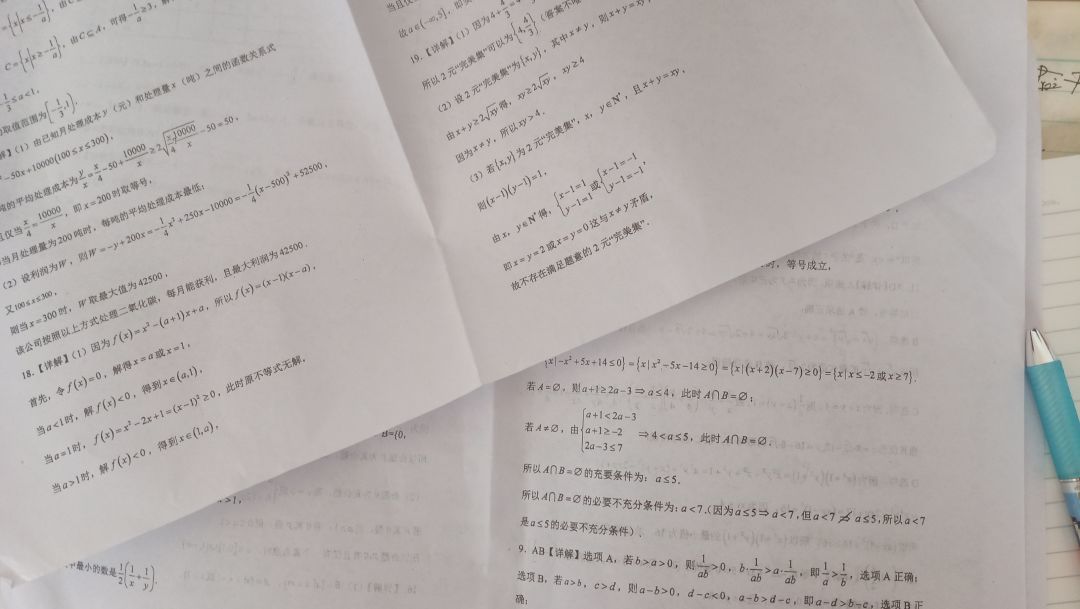 C={x|x≥-1/a}, 由C⊆A, 可得-1/a≥3,
-1/3≤a<1.
取值范围为[-1/3,1).
(1)由已知月处理成本y(元)和处理量x(吨)之间的函数关系式
-50x+10000(100≤x≤300),
吨的平均处理成本为y/x=x/4-50+10000/x≥2√(x/4·10000/x)-50=50,
且仅当x/4=10000/x, 即x=200时取等号,
当月处理量为200吨时, 每吨的平均处理成本最低;
(2)设利润为W, 则W=-y+200x=-1/4x²+250x-10000=-1/4(x-500)²+52500,
又100≤x≤300,
则当x=300时, W取最大值为42500,
该公司按照以上方式处理二氧化碳, 每月能获利, 且最大利润为42500.
18.【详解】(1)因为f(x)=x²-(a+1)x+a, 所以f(x)=(x-1)(x-a),
首先, 令f(x)=0, 解得x=a或x=1,
当a<1时, 解f(x)<0, 得到x∈(a,1),
当a=1时, f(x)=x²-2x+1=(x-1)²≥0, 此时原不等式无解,
当a>1时, 解f(x)<0, 得到x∈(1,a),
故a∈(-∞,5],
19.【详解】(1)因为4+4/3=4
所以2元“完美集”可以为{4,4/3}.(答案不唯
(2)设2元“完美集”为{x,y}, 其中x≠y, 则x+y=xy,
由x+y≥2√xy得, xy≥2√xy, xy≥4
因为x≠y, 所以xy>4.
(3)若{x,y}为2元“完美集”, x, y∈N*, 且x+y=xy,
则(x-1)(y-1)=1,
由x, y∈N*得, {x-1=1 y-1=1 或{x-1=-1 y-1=-1,
即x=y=2或x=y=0这与x≠y矛盾,
故不存在满足题意的2元“完美集”.
时, 等号成立,
{x|-x²+5x+14≤0}={x|x²-5x-14≥0}={x|(x+2)(x-7)≥0}={x|x≤-2或x≥7}.
若A=∅, 则a+1≥2a-3⇒a≤4, 此时A∩B=∅;
若A≠∅, 由{a+1<2a-3 a+1≥-2 2a-3≤7 ⇒4<a≤5, 此时A∩B=∅.
所以A∩B=∅的充要条件为: a≤5.
所以A∩B=∅的必要不充分条件为: a<7.(因为a≤5⇒a<7,但a<7⇏a≤5,所以a<7
是a≤5的必要不充分条件).
9. AB【详解】选项A, 若b>a>0, 则1/ab>0, b·1/ab>a·1/ab, 即1/a>1/b, 选项A正确;
选项B, 若a>b, c>d, 则a-b>0, d-c<0, a-b>d-c, 即a-d>b-c, 选项B正
确;
B={0,
中最小的数是1/2(1/x+1/y).